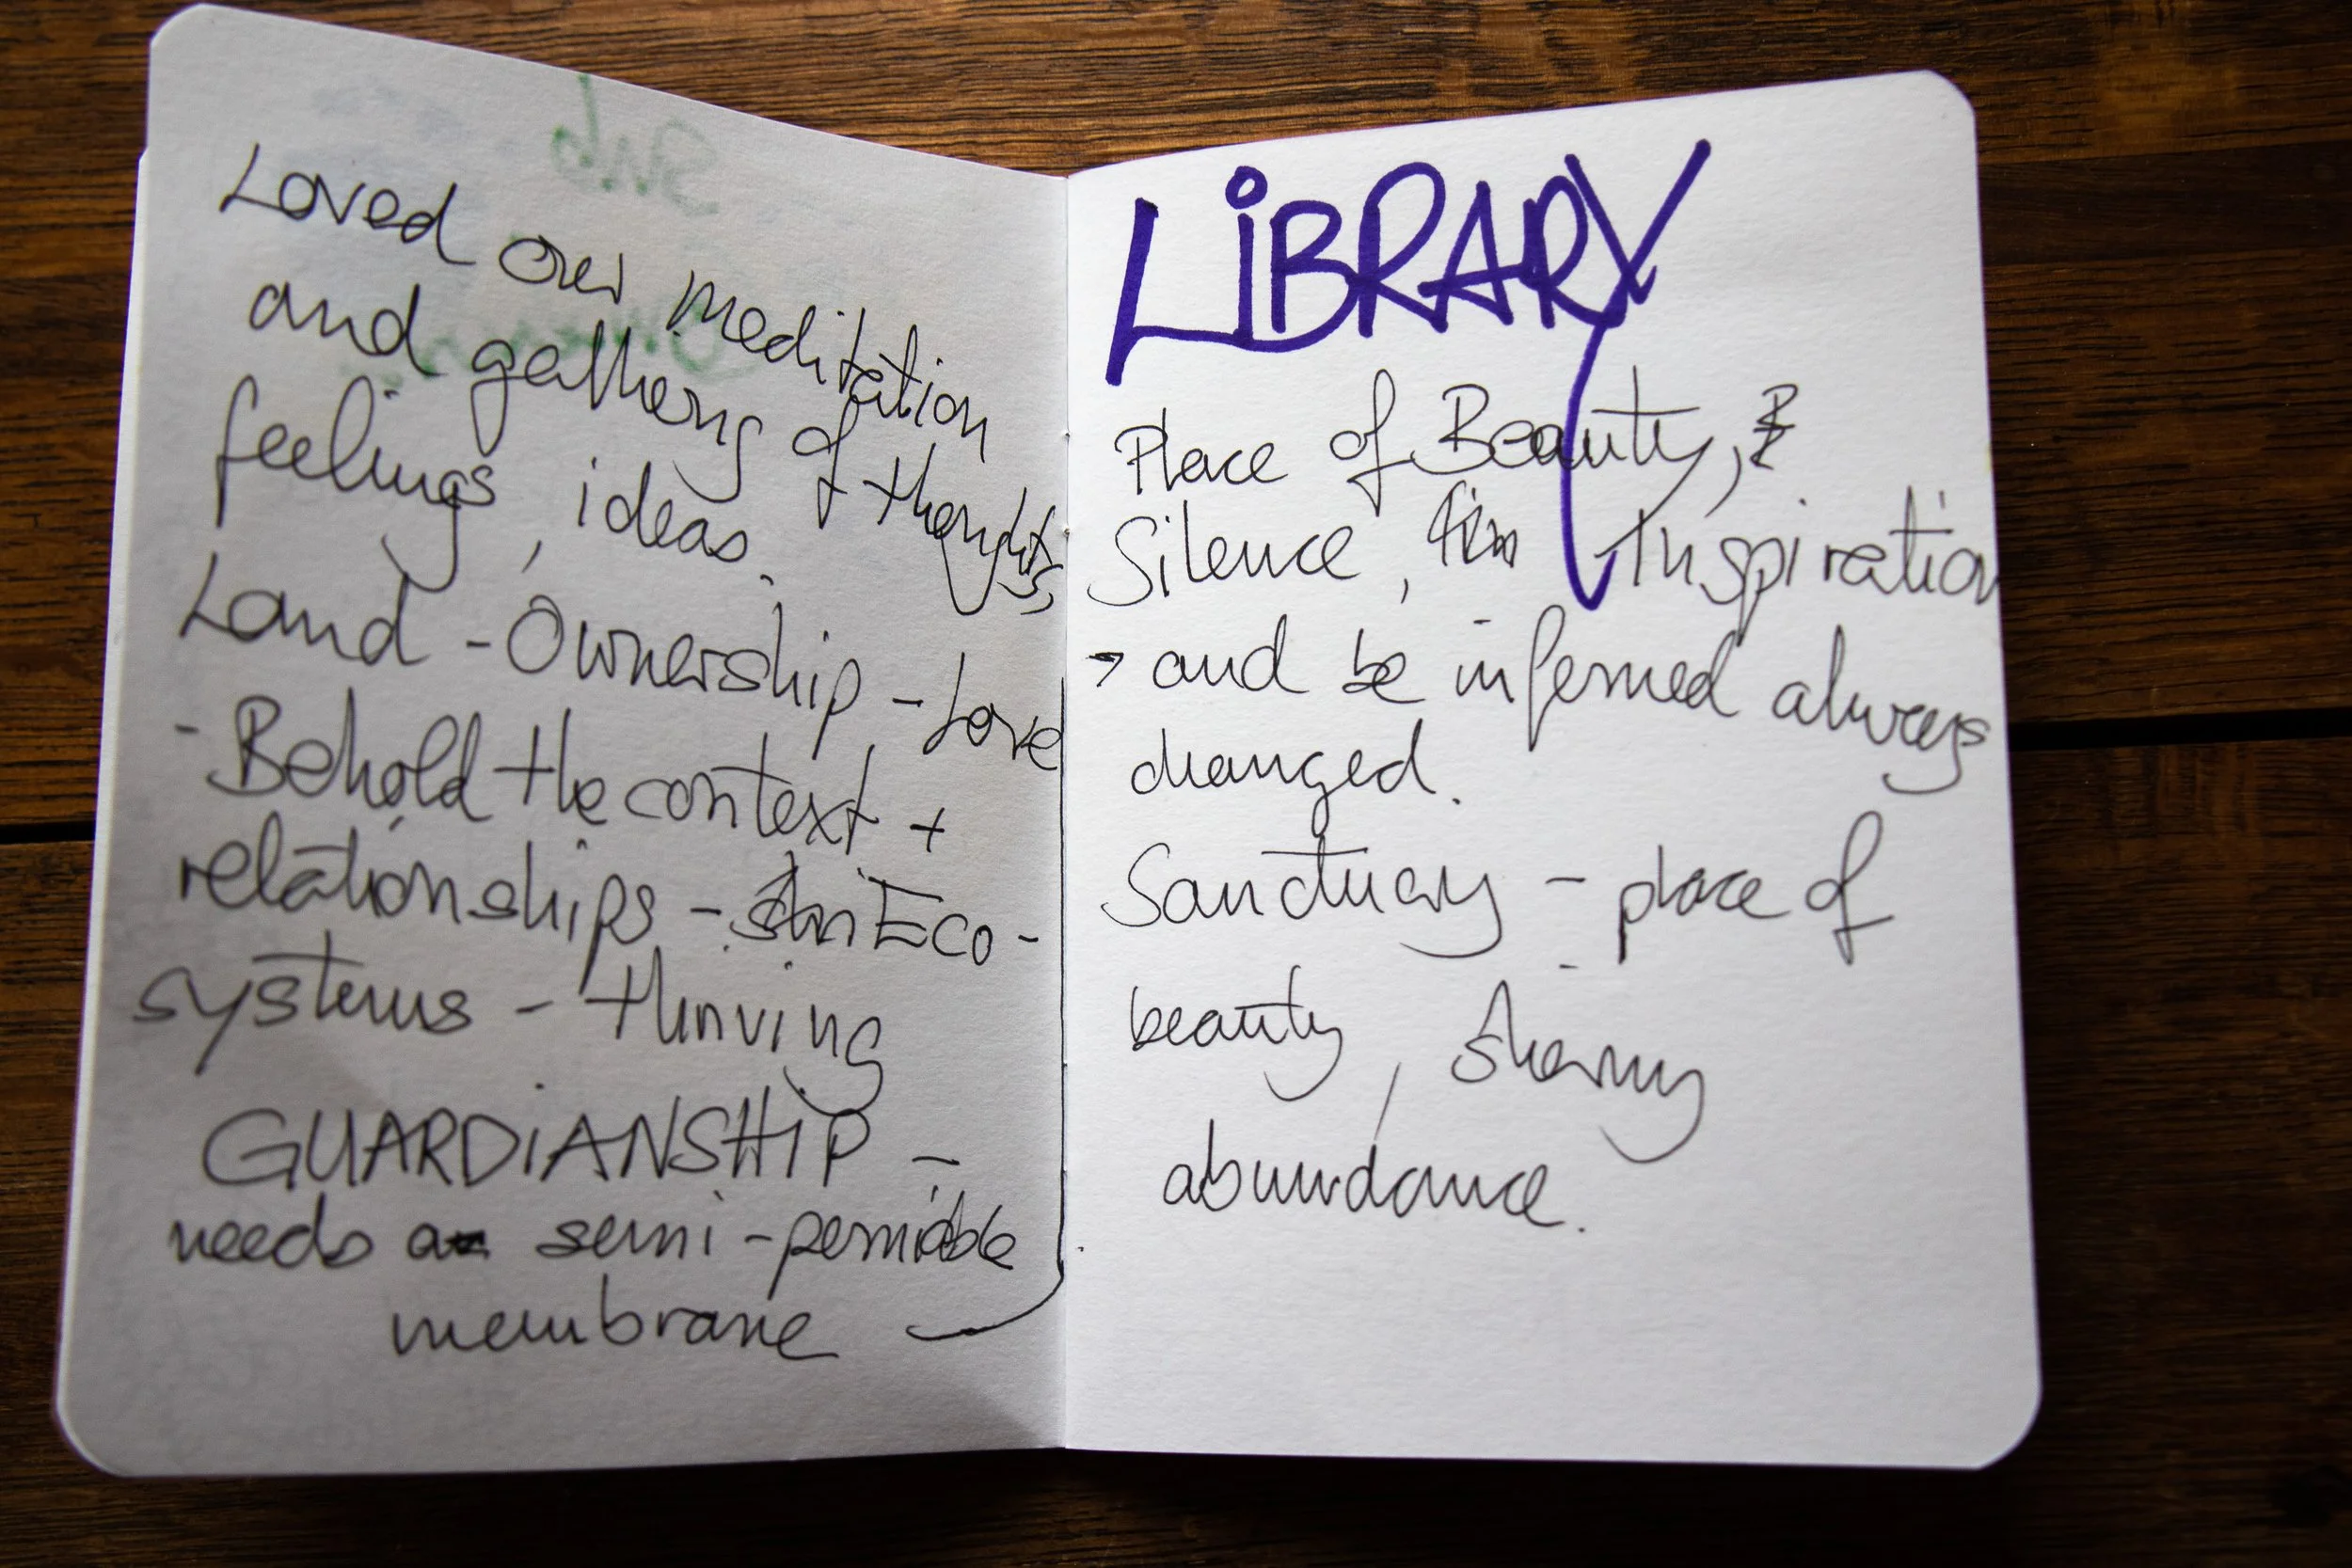 Loved our meditation
and gatherng of thoughts,
feelings, ideas.
Land - Ownership - Love
- Behold the context +
relationships - in Eco-
systems - thriving
GUARDiANSHiP -
needs a semi-permiable
membrane
LiBRARY
Place of Beauty,
Silence, Inspiration
→ and be informed always
changed.
Sanctuary - place of
beauty, sharing
abundance.